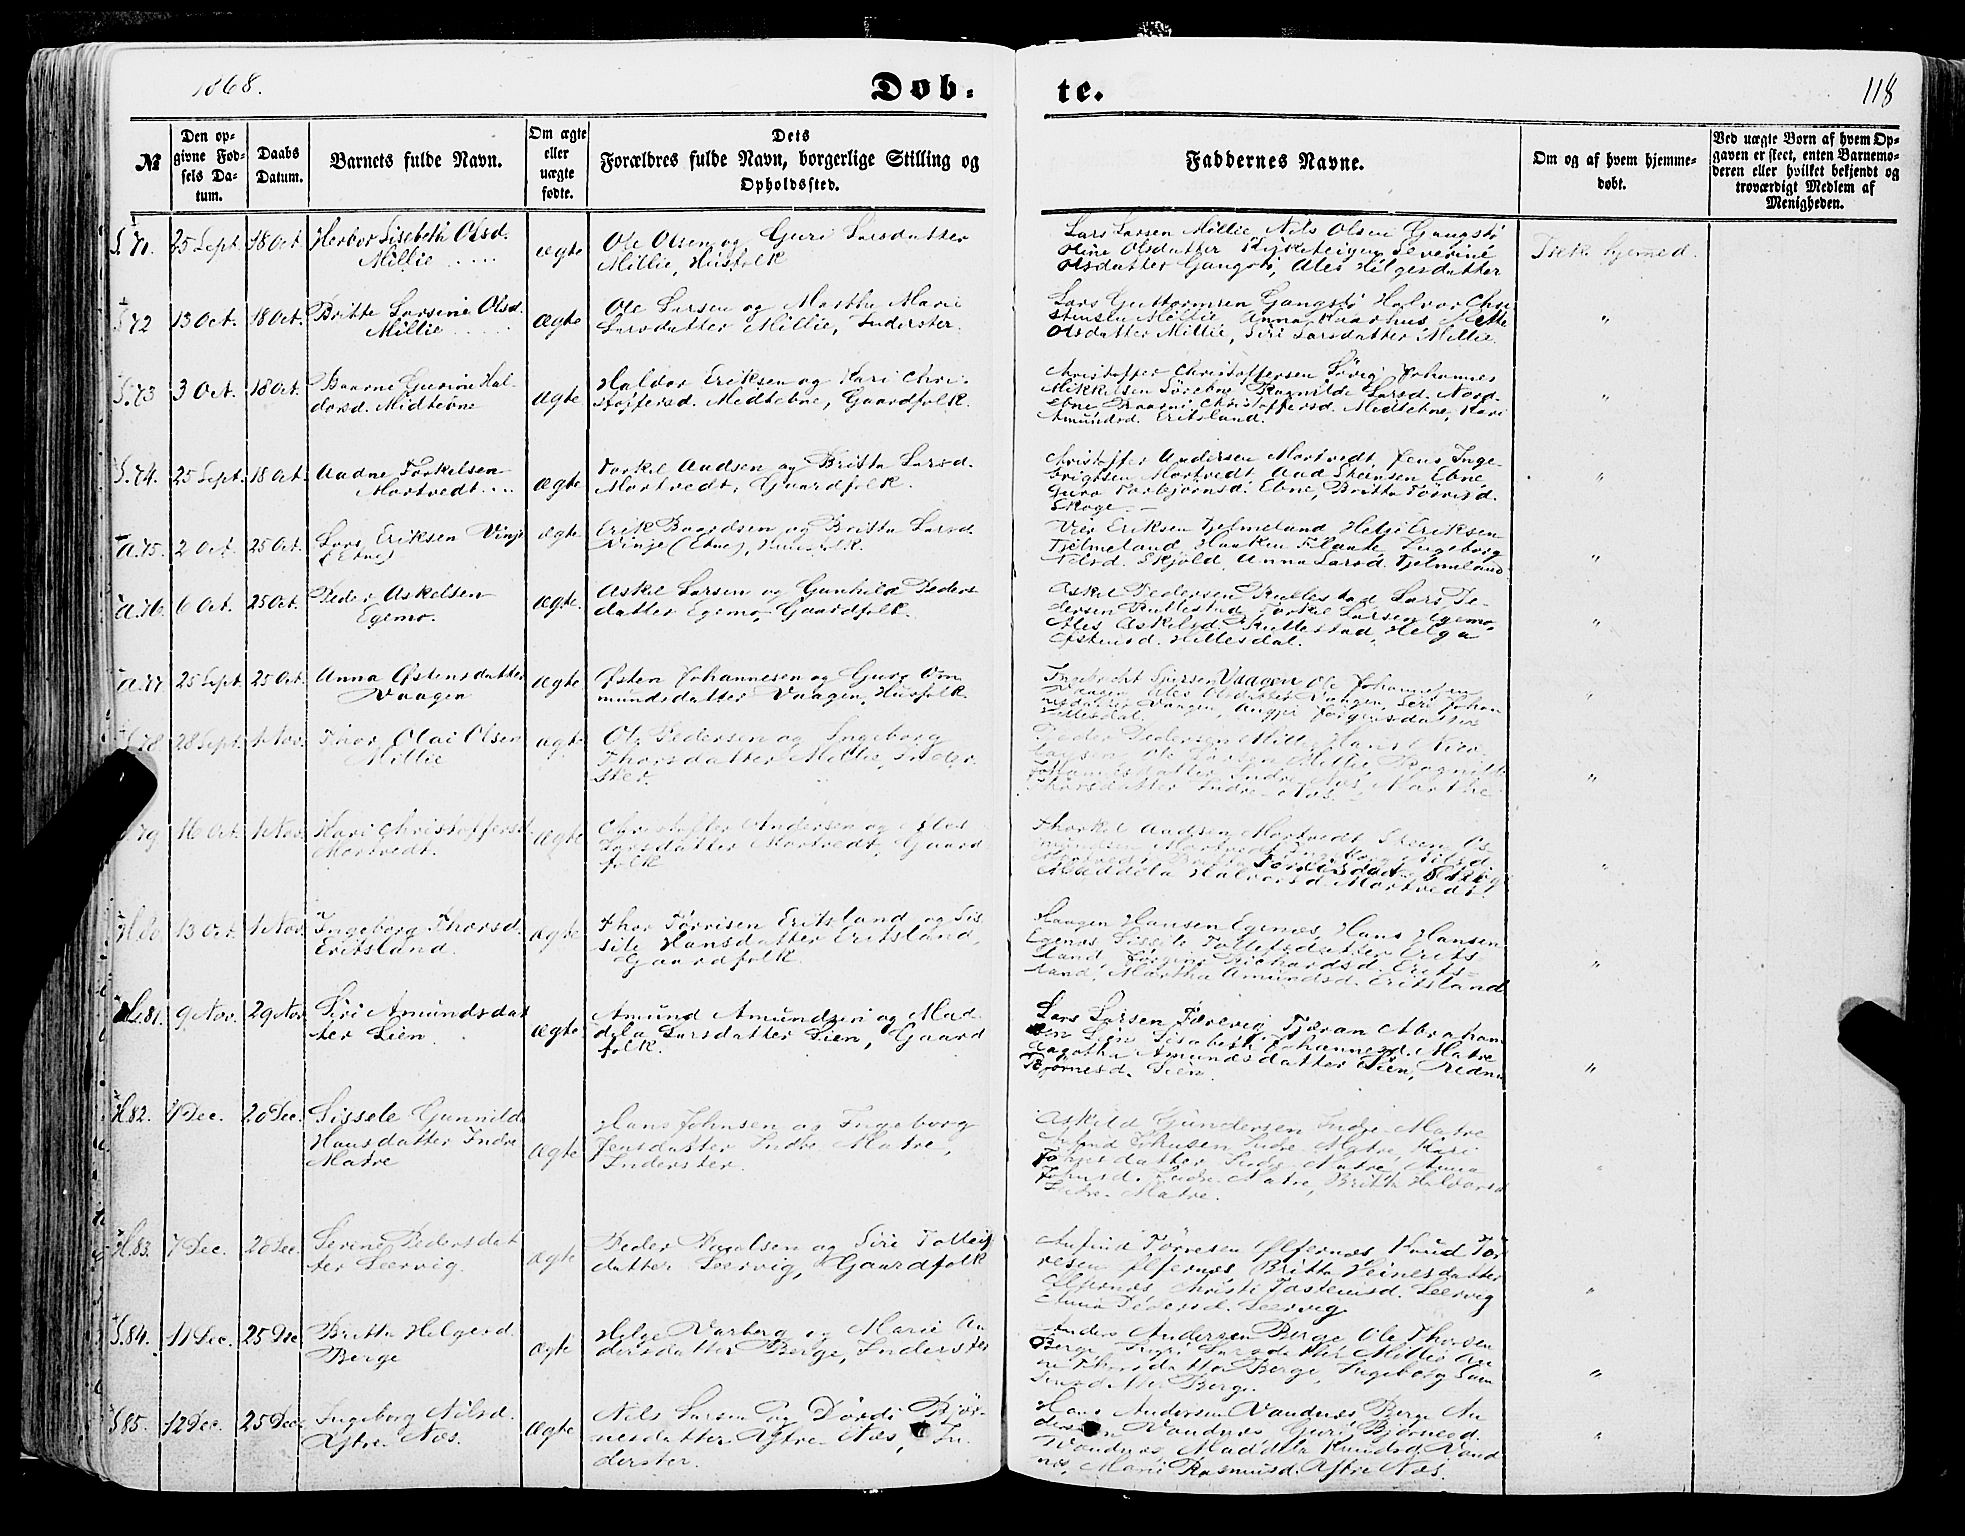 1868.
Døb-
te.
118
№
Den op-
givne Fød-
sels Da-
tum.
Daabs
Datum.
Barnets fulde Navn.
Om ægte
eller
uægte
fødte.
Dets
Forældres fulde Navn, borgerlige Stilling og
Opholdssted.
Faddernes Navne.
Om og af hvem hjemme-
døbt.
Ved uægte Børn af hvem Op-
gaven er skeet, enten Barnemo-
deren eller hvilket bekjendt og
troværdigt Medlem af
Menigheden.
71. 25 Sept. 18 Oct. Herbor Lisebeth Olsd.
Millie
ægte
Ole Olsen og Guri Larsdatter
Millie, Husfolk
Lars Larsen Millie Nils Olsen Gangstø
Olsdatter Severine
Olsdatter Gangstø, Ales Helgesdatter
Ikke hjemed.
72 13 Oct. 18 Oct. Britte Larsine Olsd.
Millie
Ægte
Ole Larsen og Martha Marie
Larsdatter Millie, Inderster.
Lars Guttormsen Gangstø Halvor Chri
stensen Millie Anna Aarhus, Mette
Olsdatter Millie, Siri Larsdatter Millie.
"
73 3 Oct. 18 Oct. Baarne Gurine Hal-
dorsd. Midtebne
Ægte
Haldor Eriksen og Kari Chri-
stoffersd. Medtebne, Gaardfolk.
Christoffer Christoffersen Løvig Johannes
Mikkelsen Sørebne Ragnilde Larsd. Nord-
Ebne Christoffersd. Midtebne, Kari
Amundsd. Eritsland.
"
74. 25 Sept. 18 Oct. Aadne Torkelsen
Mortvedt
Ægte
Torkel Aadsen og Britta Larsd.
Mortvedt, Gaardfolk.
Christoffer Andersen Mortvedt, Jens Inge-
brigtsen Mortvedt, Aad Steensen Ebne,
Guro Torbjørnsd. Ebne, Britta Tørrisd.
Skoge.
"
75. 2 Oct. 25 Oct. Lars Eriksen Vinje
(Ebne)
Ægte
Erik Baardsen og Britta Larsd.
Vinje (Ebne), Huusfolk.
Eriksen Tjelmeland Helje Eriksen
Tjelmeland, Haaken Flaate, Ingeborg
Nilsd. Skjold, Anna Larsd. Tjelmeland
"
76. 6 Oct. 25 Oct. Peder Askelsen
Egemo.
Ægte.
Askel Larsen og Gunhild Peders
datter Egemo, Gaardfolk.
Askel Pedersen Rullestad Lars Pe-
dersen Rullestad Torkel Larsen Egemo,
Ales Askelsd. Rullestad, Helga
Østensd. Hillesdal.
"
77 25 Sept. 25 Oct. Anna Østensdatter
Vaagen
Ægte
Østen Johannesen og Guro Om
mundsdatter Vaagen, Husfolk.
Ingebrigt Vaagen Ole Johannesen
Vaagen, Ales Vaagen, Siri Johan
nesdatter Vaagen, Jørgensdatter
Hillesdal.
"
78 28 Sept. 1 Nov. Thor Olai Olsen
Millie
ægte
Ole Pedersen og Ingeborg
Thorsdatter Millie, Inder-
ster.
Peder Pedersen Millie Hans
Ole Larsen Millie Ragnilde
Johannesdatter Indre Næs, Marthe
Thorsdatter Indre Næs.
"
79 16 Oct. 1 Nov. Kari Christoffersd.
Mortvedt.
Ægte
Christoffer Andersen og Ales
Larsdatter Mortvedt, Gaard
folk
Thorkel Aadsen Mortvedt, Os-
mundsen Mortvedt Ingeborg Nilsd.
Mortvedt Britta Torkelsdatter
Maddela Halvorsd. Mortvedt.
"
80 13 Oct. 1 Nov. Ingeborg Thorsd.
Eritsland.
Ægte
Thor Tørrisen Eritsland og Sis
sile Hansdatter Eritsland,
Gaardfolk.
Haagen Hansen Egenæs, Hans Hansen
Egenæs, Sissile Tollefsdatter Erits
land, Richardsd. Erits-
land, Martha Amundsd. Eritsland
"
81. 9 Nov. 29 Nov. Siri Amundsdat
ter Lien.
Ægte
Amund Amundsen og Mad
dela Larsdatter Lien, Gaard
folk.
Lars Larsen Tjæran Abraham
sen Lien Lisabeth Johannesd. Matre
Aagotha Amundsdatter Lien,
Bjørnesd. Lien.
"
H.82. 4 Dec. 20 Dec. Sissele Gunnilde
Hansdatter Indre
Matre
Ægte
Hans Johnsen og Ingeborg
Jensdatter Indre Matre,
Inderster.
Askild Gundersen Indre Matre
Johnsen Indre Matre, Kari
datter Indre Matre, Anna
Johnsd. Indre Matre, Britta Haldorsd.
Indre Matre.
"
H.83. 7 Dec. 20 Dec. Serine Pedersdat
ter Leervig.
Ægte
Peder Poulsen og Siri Tolleifs
datter Leervig, Gaardfolk
Anfind Tørresen Ølfernæs, Knud Tør
resen Ølfernæs Britta Heinesdatter
Ølfernæs Christi Tostensd. Leervig
Anna Pedersd. Leervig
"
84. 11 Dec. 25 Dec Britta Helgesd.
Berge
Ægte
Helge Varberg og Marie An
dersdatter Berge, Inderster
Anders Andersen Berge Ole Thorsen
Berge, Larsdatter Millie An
ne Thorsdatter Berge, Ingeborg
datter Berge.
"
85. 12 Dec. 25 Dec. Ingeborg Nilsd.
Yttre Næs.
Ægte
Nils Larsen og Dordi Bjør-
nesdatter Yttre Næs, In-
derster.
Hans Andersen Vandnæs, Berge An
dersen Vandnæs Guri Bjørnesd.
Vandnæs, Maddela Knudsd. Vand
næs, Mari Rasmusd. Yttre Næs.
"